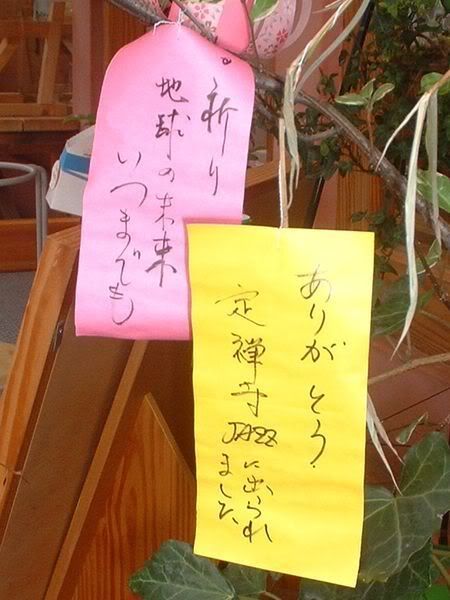 祈り
地球の未来
いつまでも
ありがとう.
定禅寺
JAZZに出られ
ました。